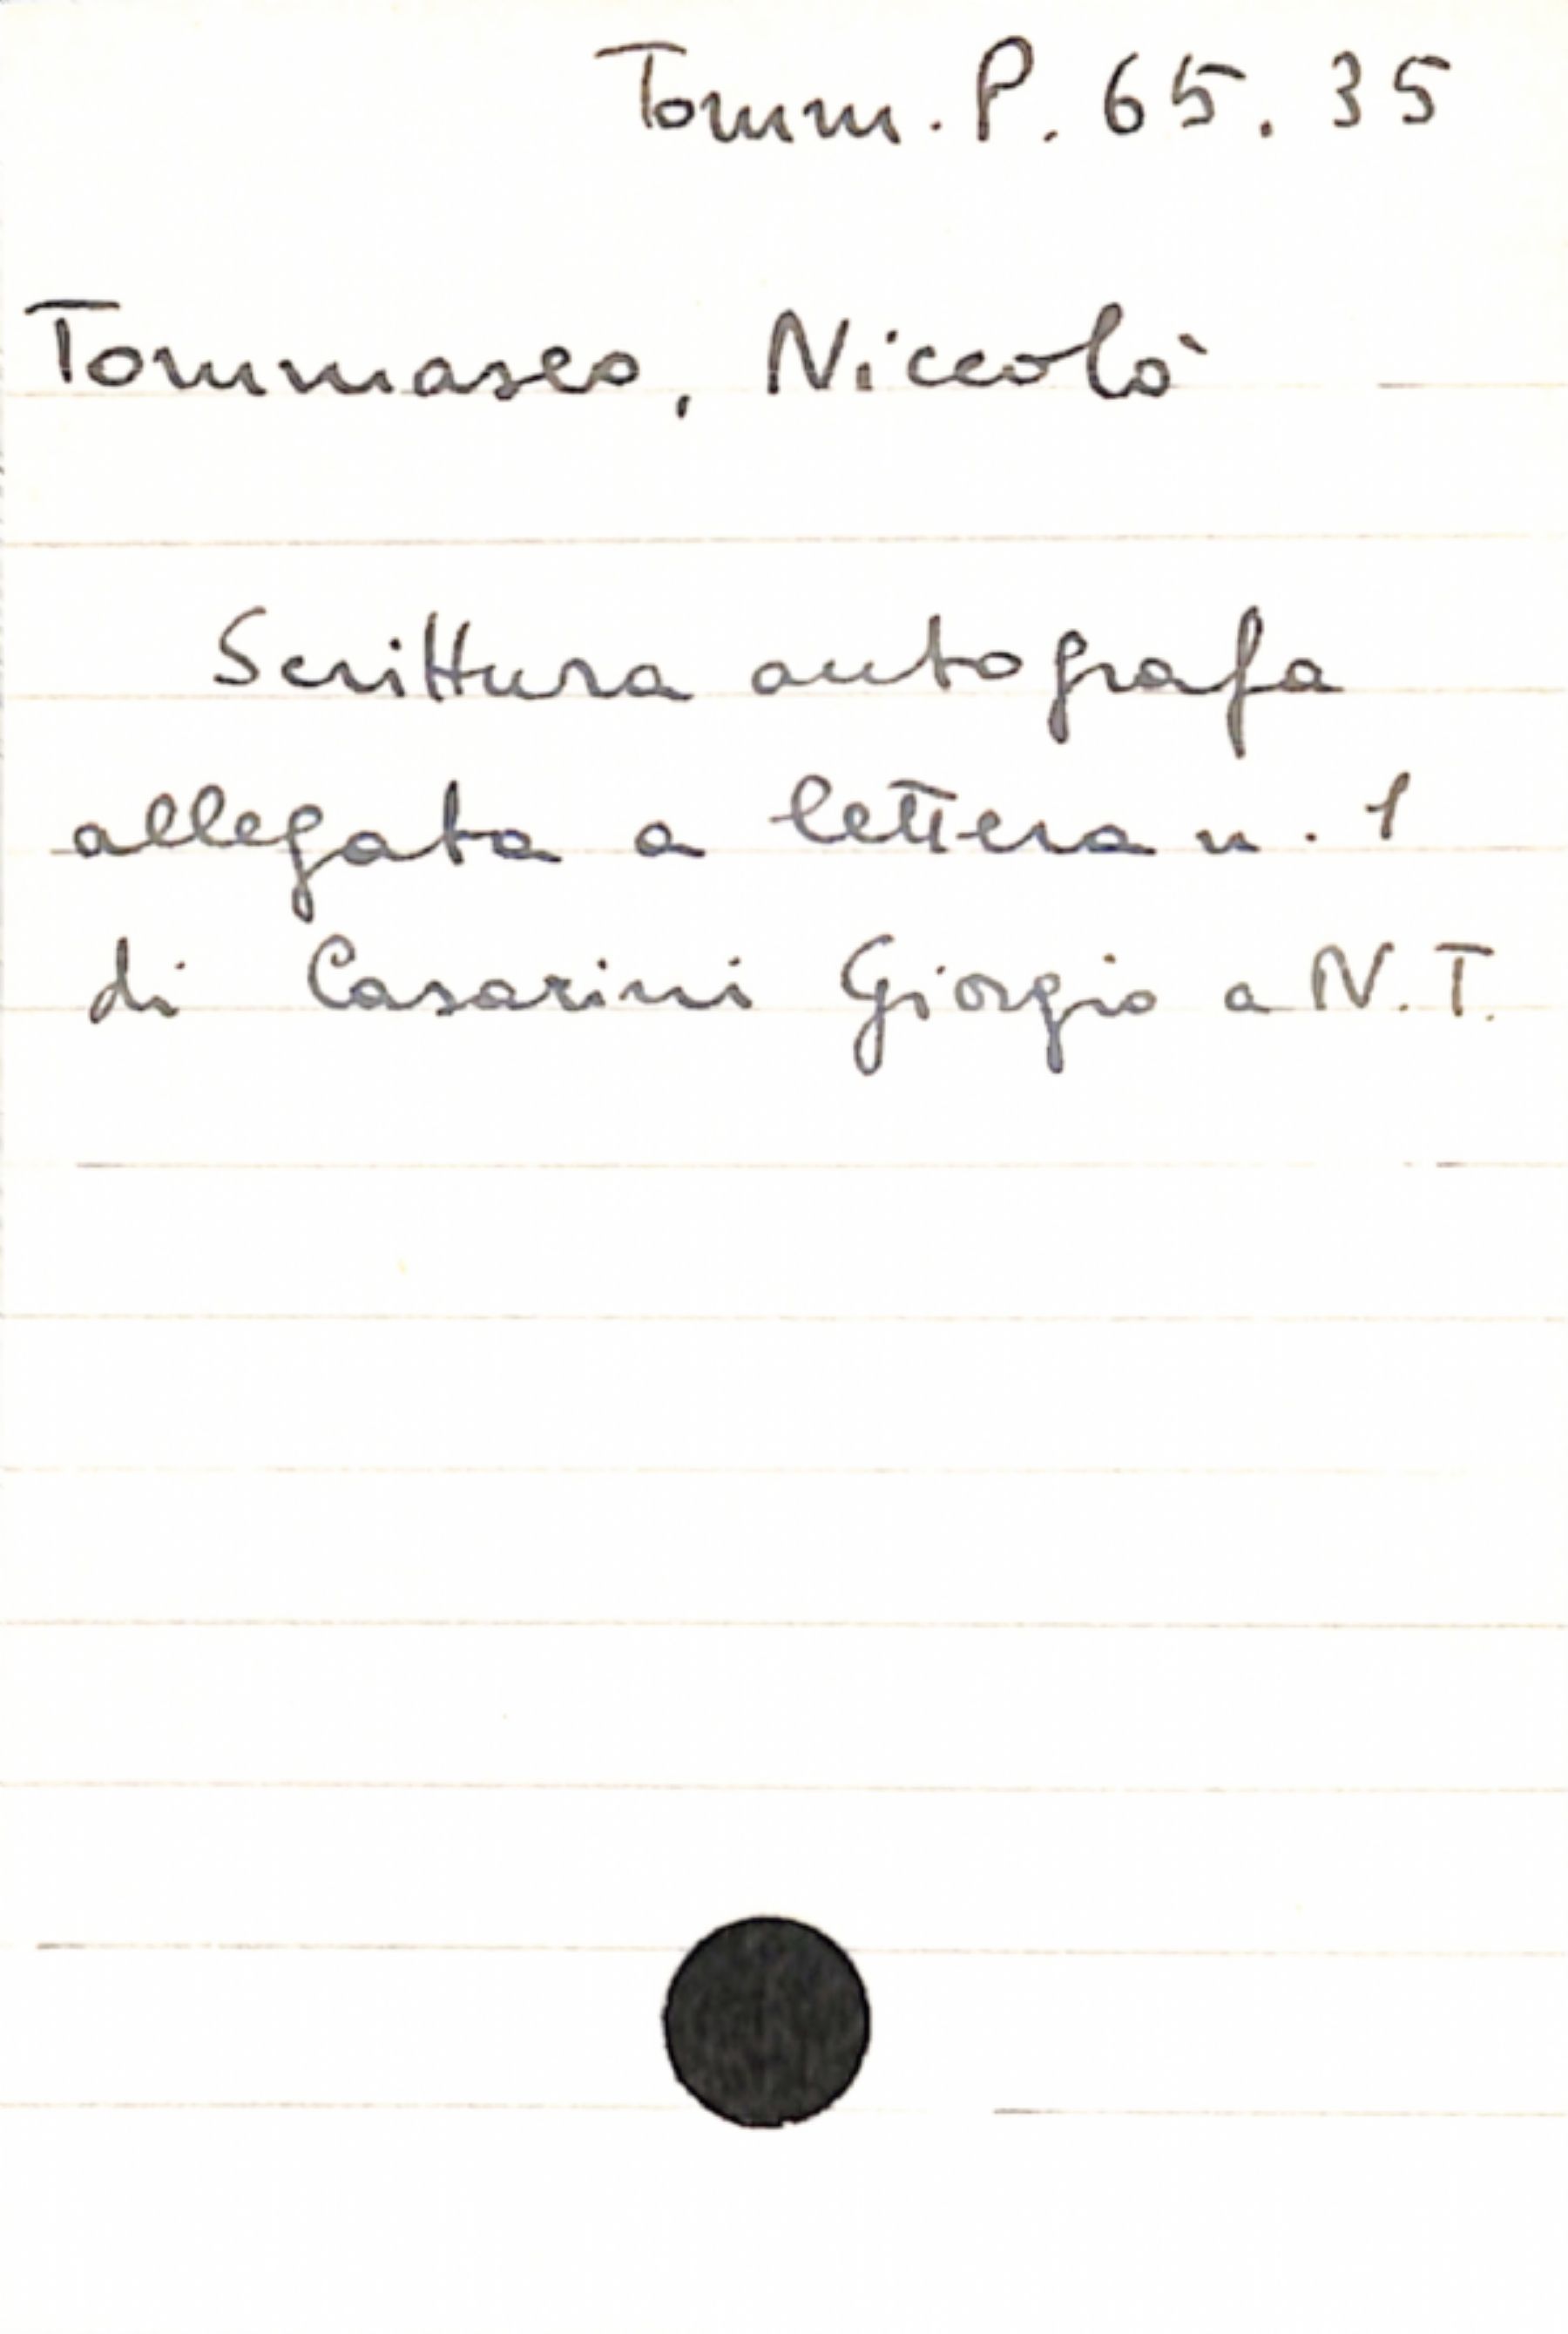 Tomm. P. 65. 35
Tommaseo, Niccolò
Scrittura autografa
allegata a lettera n. 1
di Casarini Giorgio a N.T.